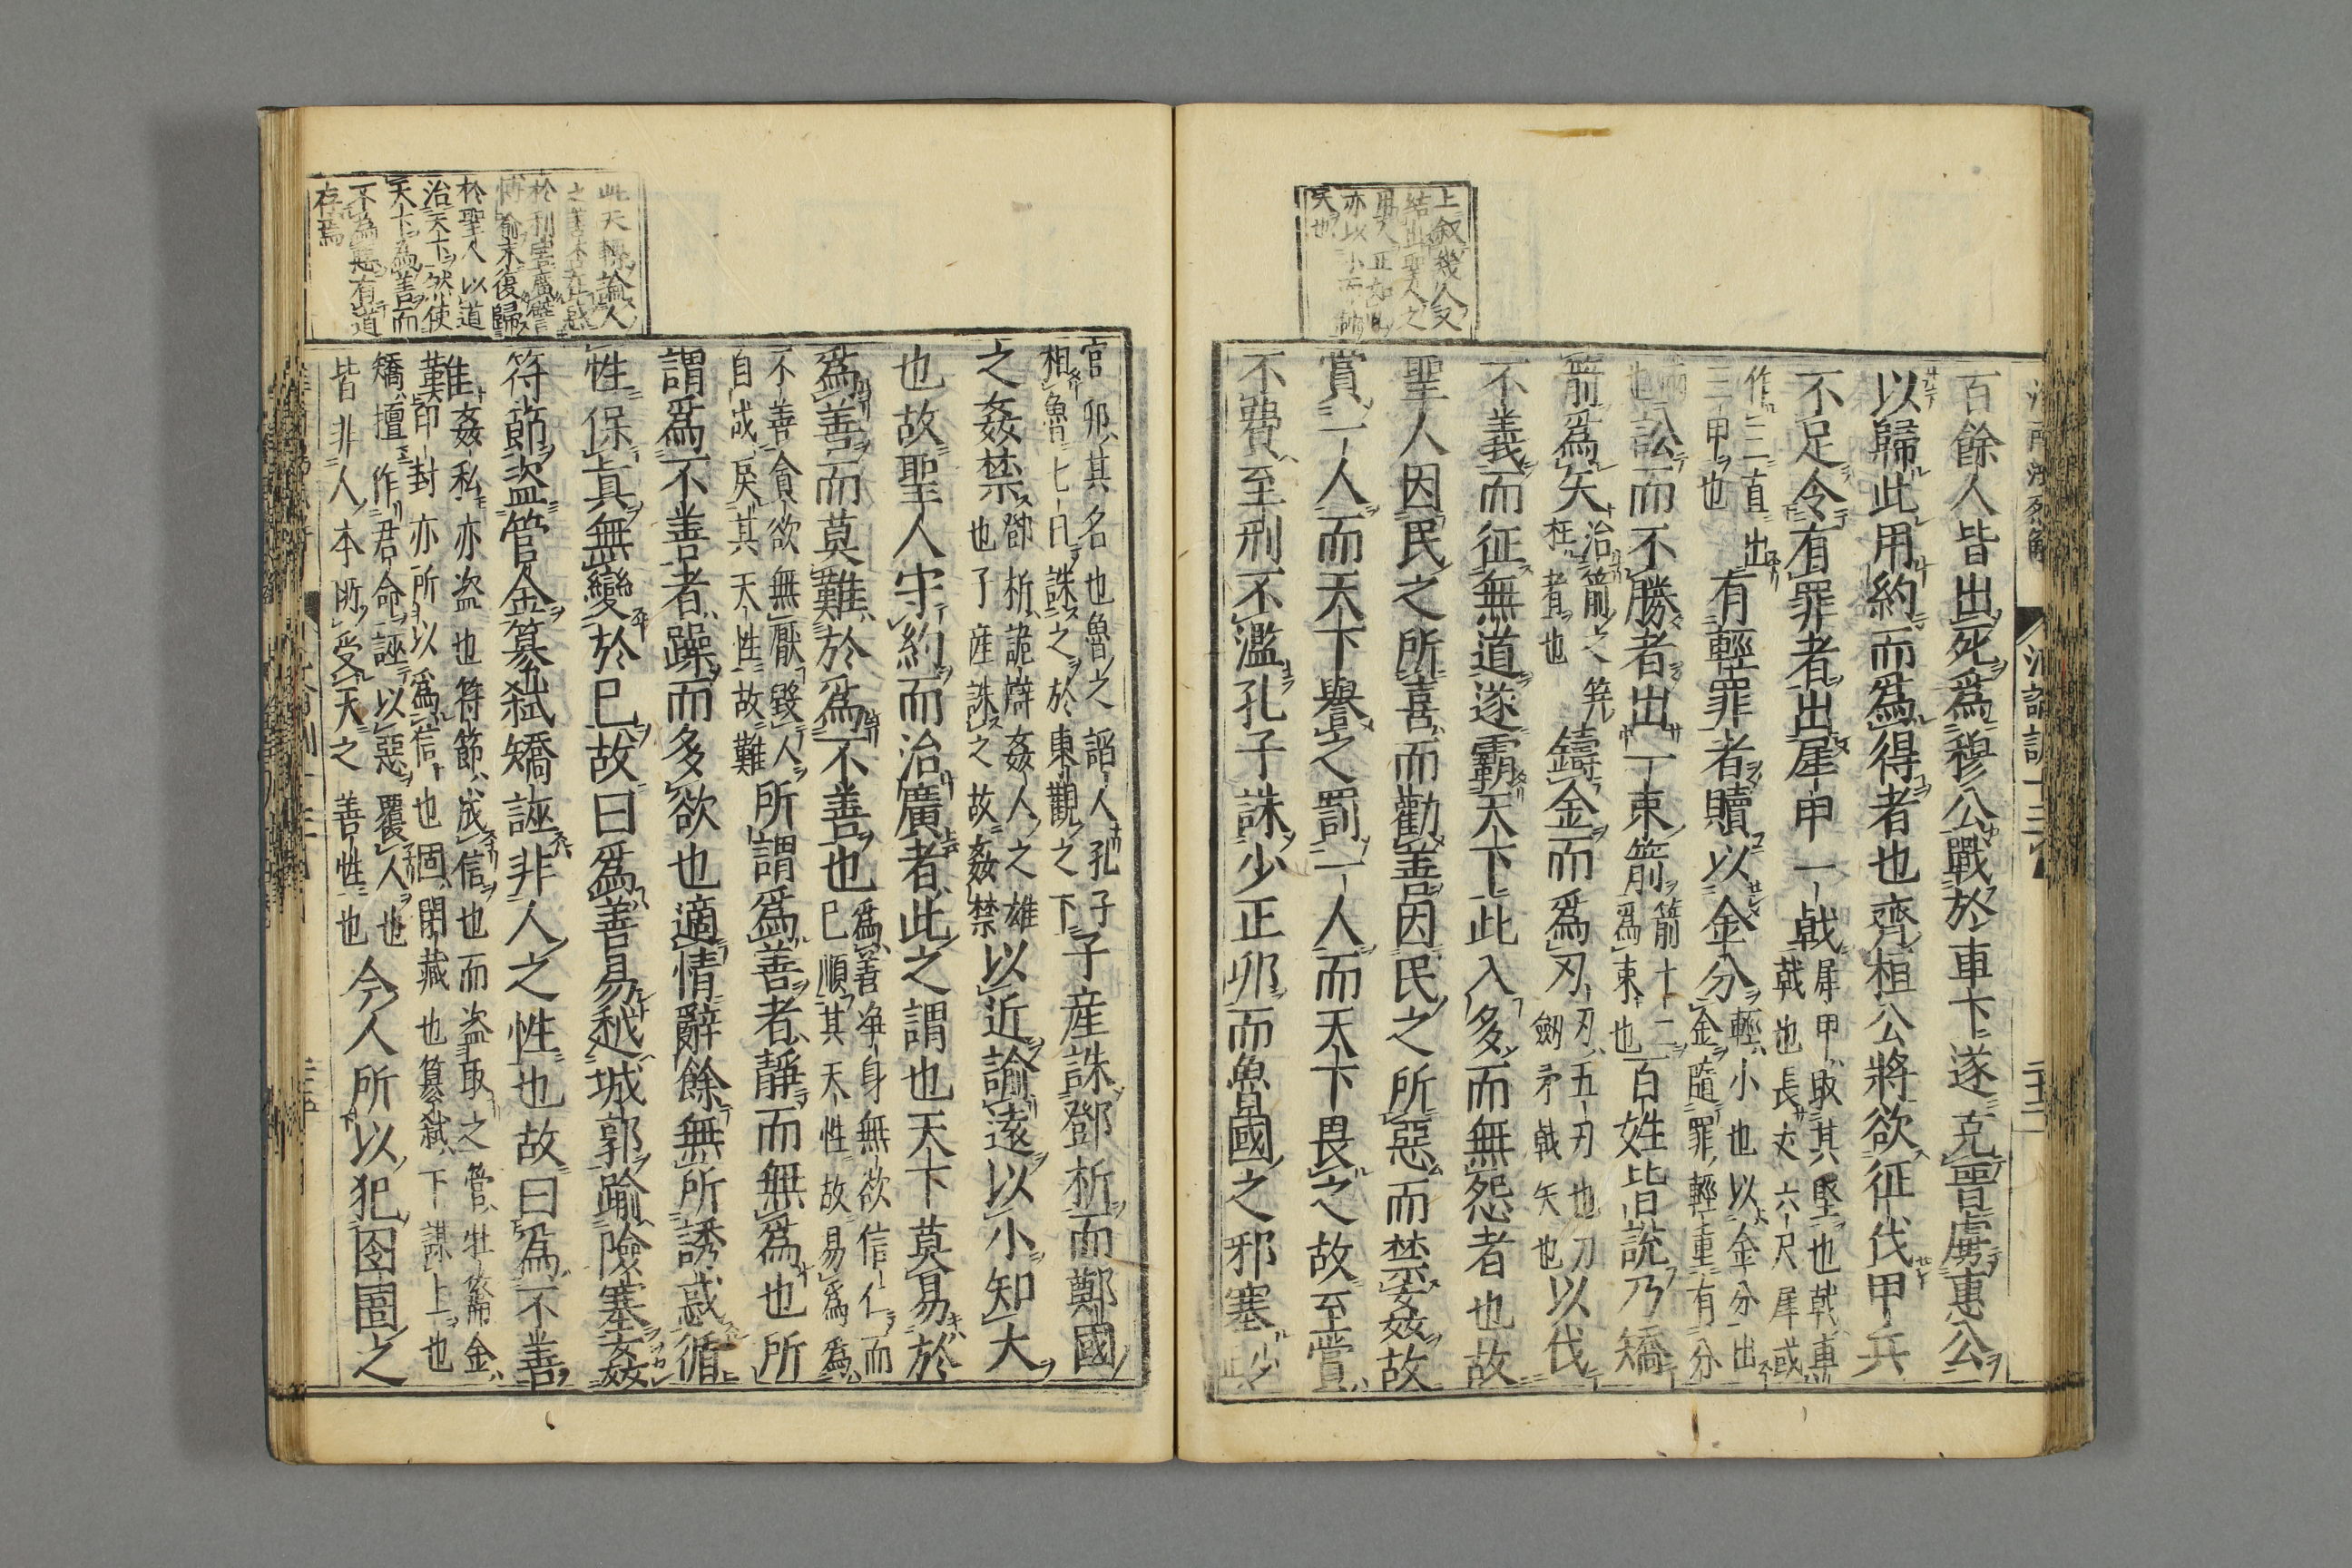 上叙幾人又
結出聖人之
亦以小而納
矣也
百餘人皆出死爲穆公戰於車下遂克晉虜惠公
以歸此用約而爲得者也齊桓公將欲征伐甲兵
不足令有罪者出犀甲一戟
犀甲取其堅也戟車
戟也長丈六尺犀或
作三直出
三甲也
有輕罪者贖以金分
輕小也以金分出
金隨罪輕重有分
兩
也
訟而不勝者出一束箭
箭十二
爲束也
百姓皆說乃矯
箭爲矢
治箭之笄
枉者也
鑄金而爲刃
刃五刃也刀
劒矛戟矢也
以伐
不義而征無道遂霸天下此入多而無怨者也故
聖人因民之所喜而勸善因民之所惡而禁姦故
賞一人而天下譽之罰一人而天下畏之故至賞
不費至刑不濫孔子誅少正卯而魯國之邪塞
少
此天轉論人
之善本在惑
於刑
喻末復歸
於聖人以道
治天下然使
天下爲善而
不爲惡有道
存焉
官卯其名也魯之謟人孔子
相魯七日誅之於東觀之下
子産誅鄧析而鄭國
之姦禁
鄧析詭辯姦人之雄
也子産誅之故姦禁
以近諭遠以小知大
也故聖人守約而治廣者此之謂也天下莫易於
爲善而莫難於爲不善也
爲善淨身無欲信仁而
已順其天性故易爲爲
不善貪欲無厭毀人
自成戾其天性故難
所謂爲善者靜而無爲也所
謂爲不善者躁而多欲也適情辭餘無所誘惑循
性保眞無變於己故曰爲善易越城郭踰險塞姦
符節盜管金篡弑矯誣非人之性也故曰爲不善
難
姦私亦盜也符節成信也而盜取之管牡籥金
印封亦所以爲信也固閉藏也篡弑下謀上也
矯擅作君命誣以惡覆人也
皆非人本所受天之善性也
今人所以犯囹圄之